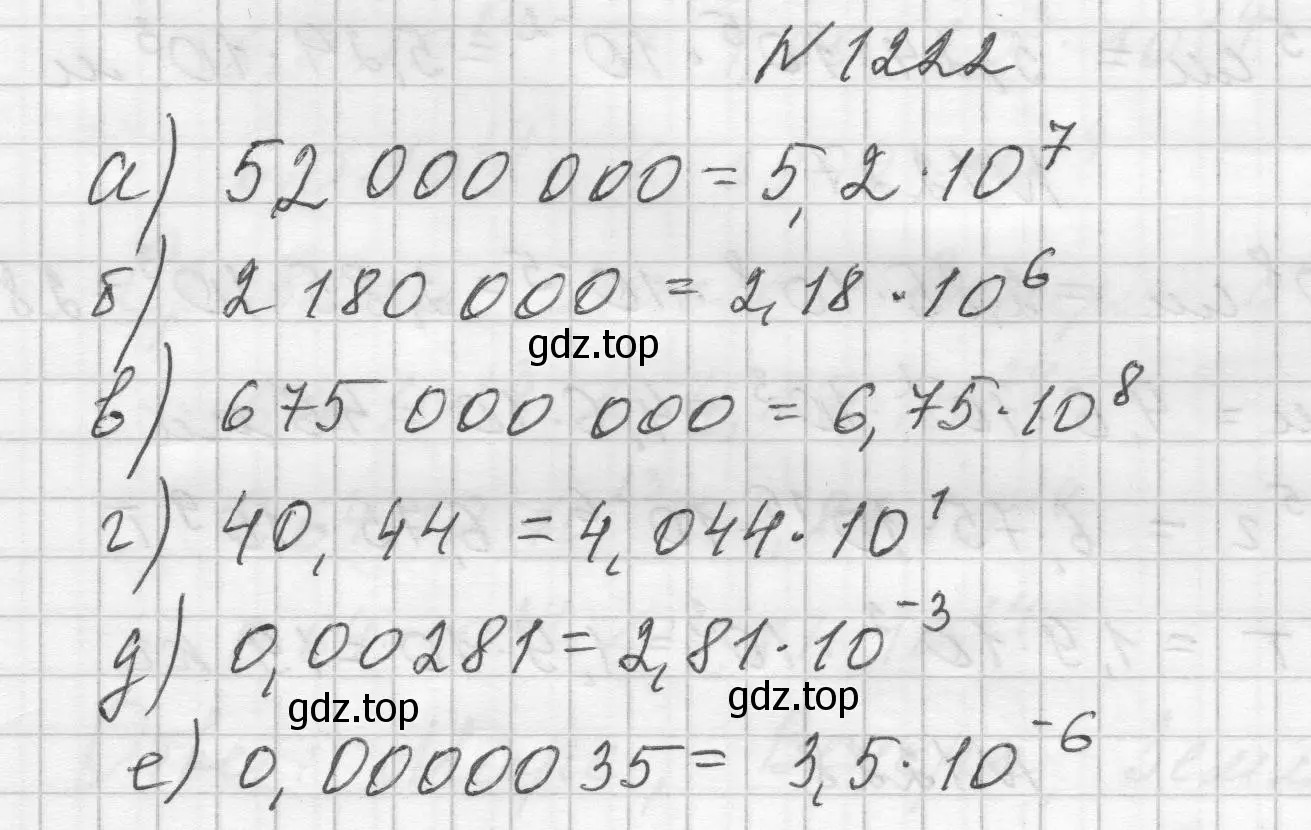 N 1222
а) 52 000 000 = 5,2 · 10⁷
б) 2 180 000 = 2,18 · 10⁶
gdz.top
в) 675 000 000 = 6,75 · 10⁸
г) 40,44 = 4,044 · 10¹
д) 0,00281 = 2,81 · 10⁻³
gdz.top gdz.top
е) 0,0000035 = 3,5 · 10⁻⁶